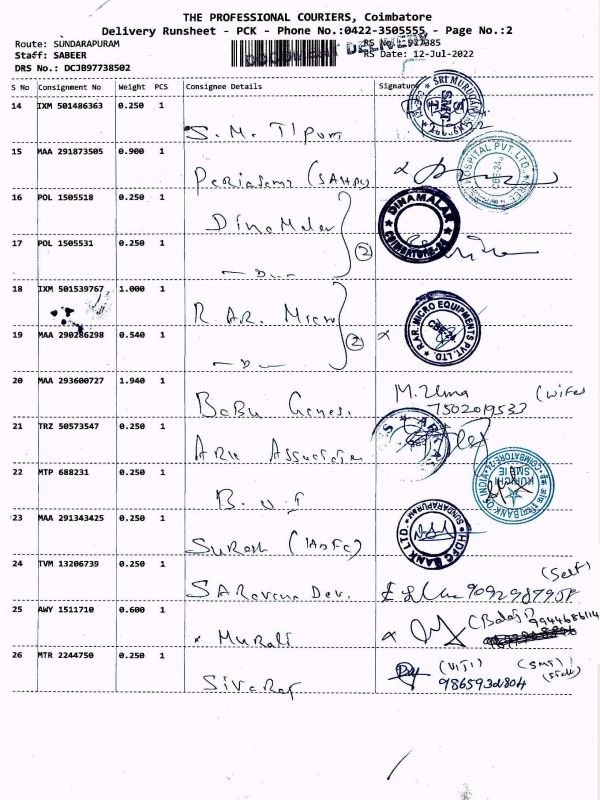 THE PROFESSIONAL COURIERS, Coimbatore
Delivery Runsheet - PCK - Phone No.:0422-3505555 - Page No.:2
Route: SUNDARAPURAM
DOCUMENT DELIVERY
Staff: SABEER RS Date: 12-Jul-2022
DRS No.: DCJB97738502
S No Consignment No Weight PCS Consignee Details Signature
14 IXM 501486363 0.250 1
S. M. Tipum
15 MAA 291873505 0.900 1
HOSPITAL PVT. LTD.
CBE-24
16 POL 1505518 0.250 1
DinaMalar
DINAMALAR
COIMBATORE-24
17 POL 1505531 0.250 1
2
18 IXM 501539767 1.000 1
R. AR. Micro
R.AR. MICRO EQUIPMENTS PVT. LTD.
CBE-24
19 MAA 290286298 0.540 1
2
20 MAA 293600727 1.940 1
Babu Ganesh
M. Uma (Wife)
7502019533
21 TRZ 50573547 0.250 1
Aru Associate
22 MTP 688231 0.250 1
B.O.I
BANK OF INDIA
KURICHI
SME IE
COIMBATORE-24
23 MAA 291343425 0.250 1
Suresh (HDFC)
HDFC BANK LTD.
SUNDARAPURAM
24 TVM 13206739 0.250 1
Saravana Dev. (Self)
25 AWY 1511710 0.600 1
x Murali
(Balaji)
9944686114
26 MTR 2244750 0.250 1
Sivaraj
(Viji)